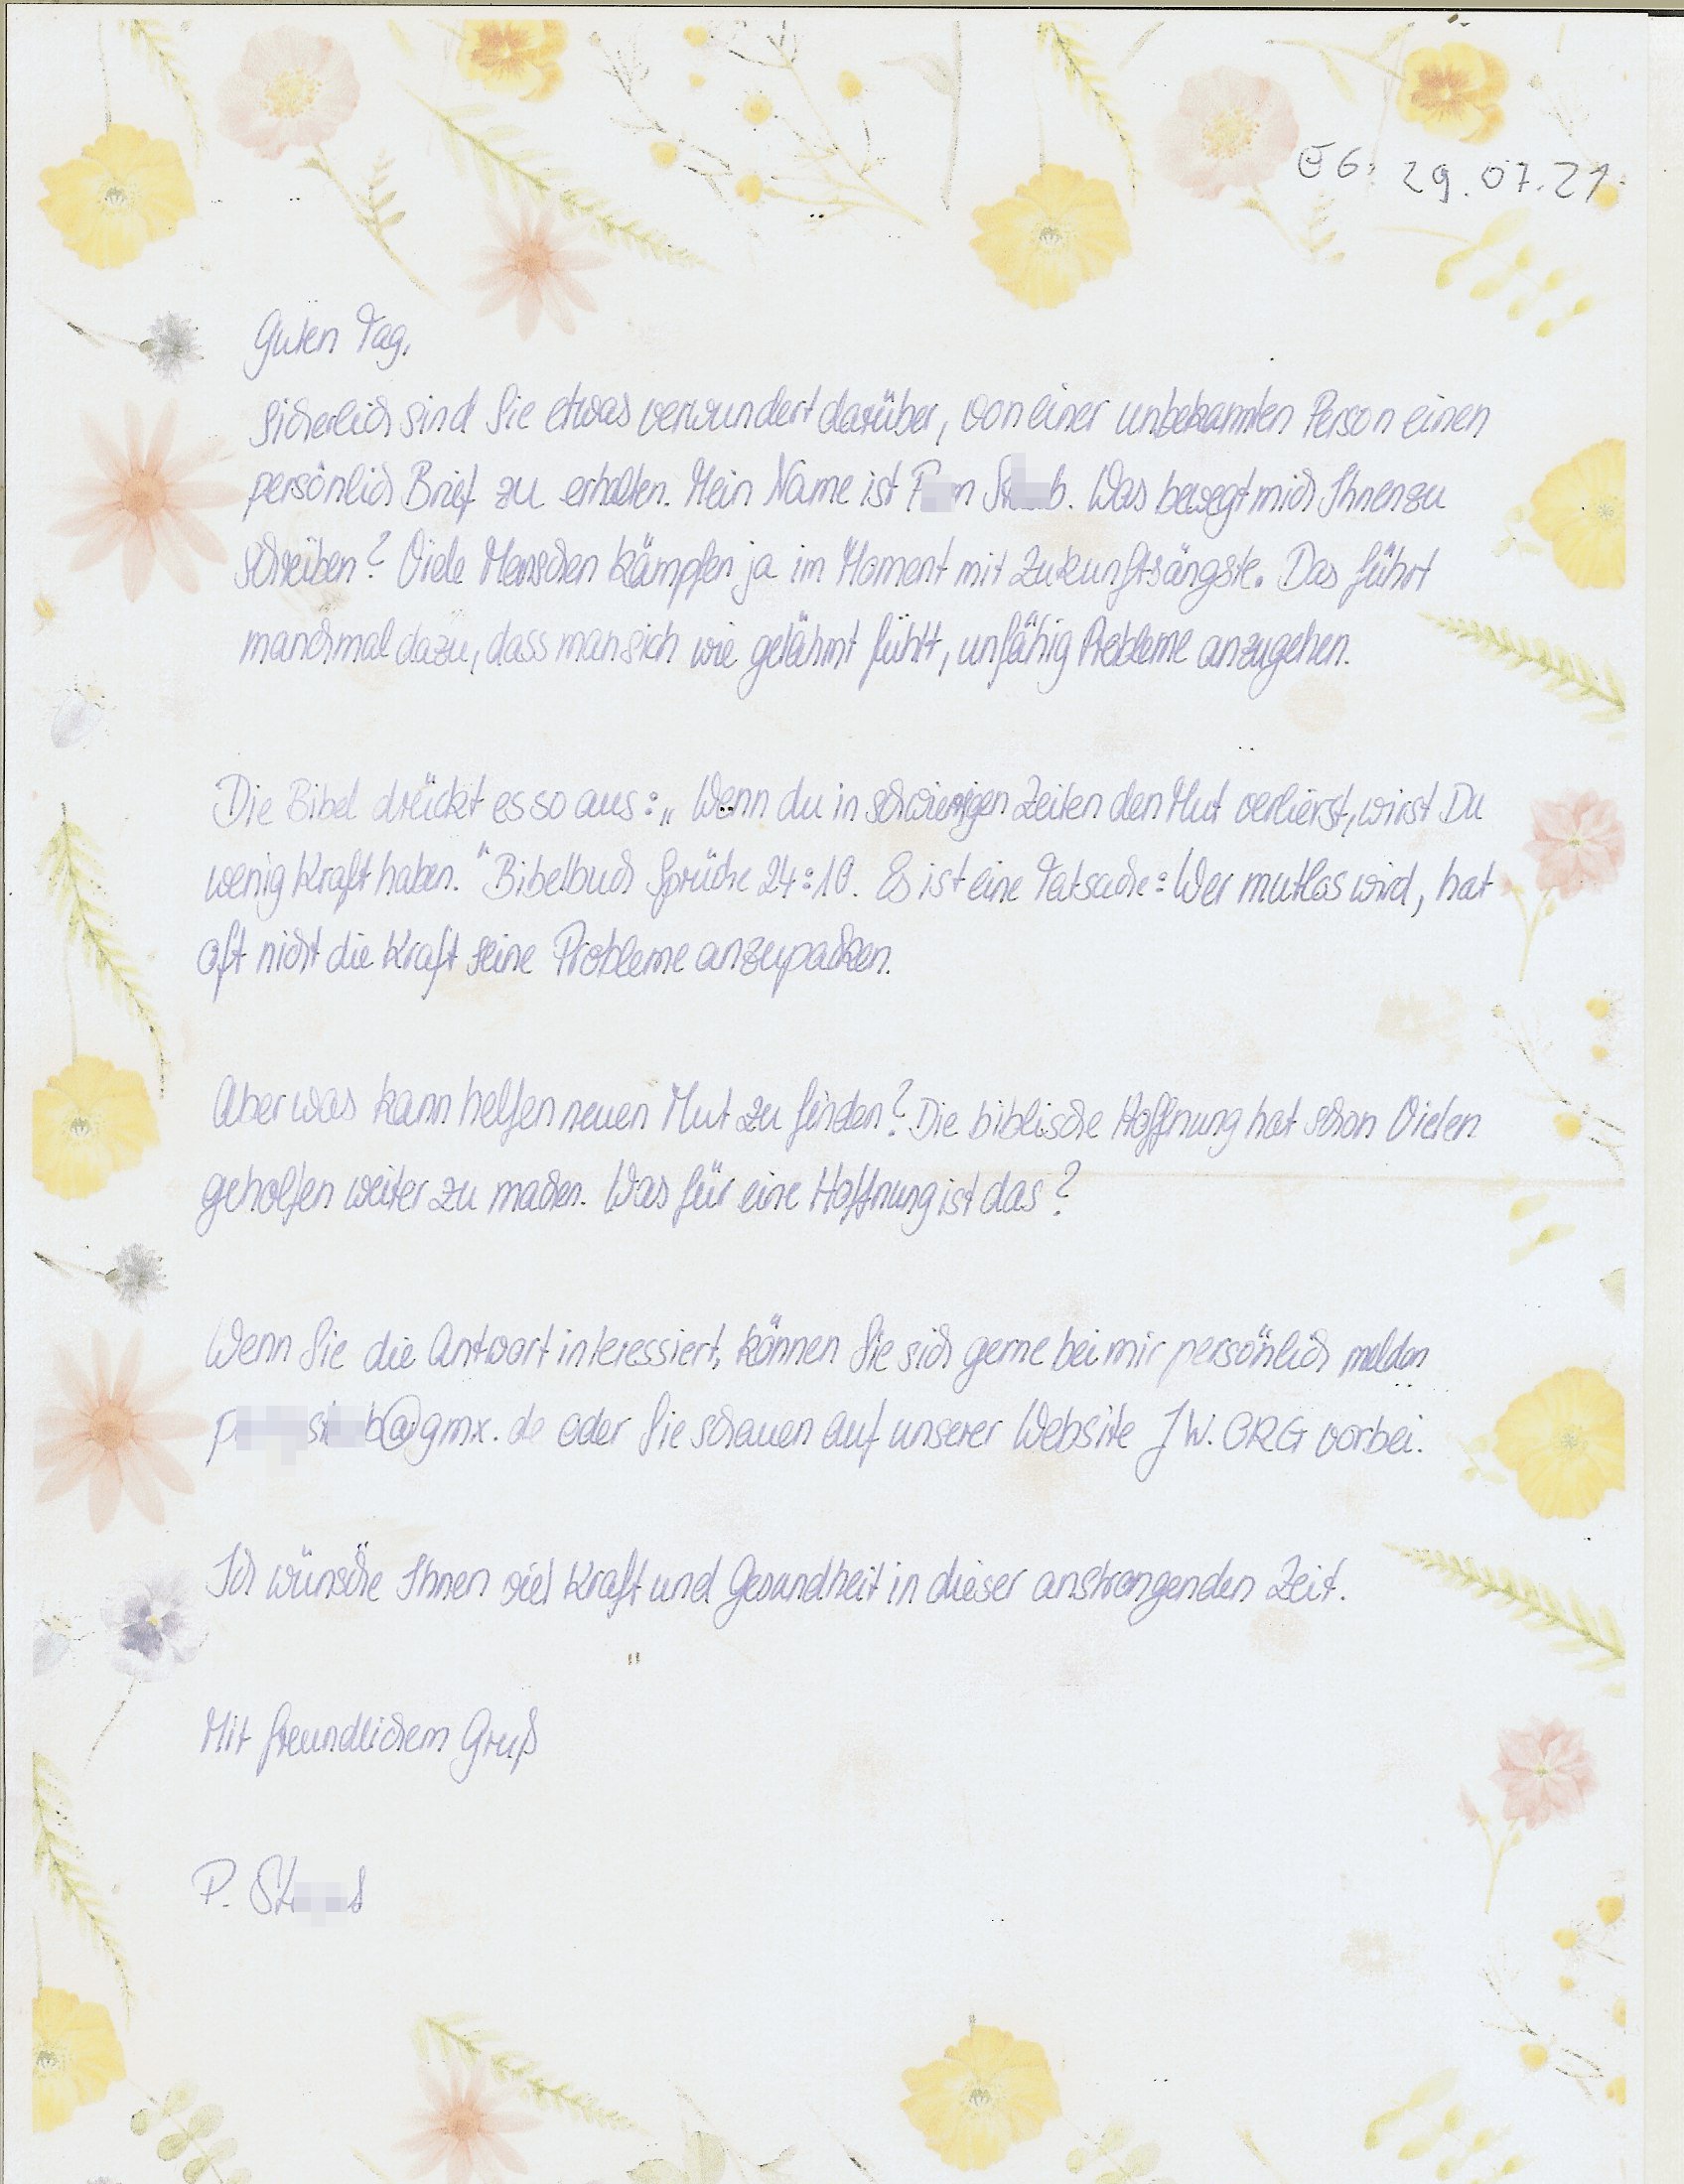 EG: 29.07.21
Guten Tag,
sicherlich sind Sie etwas verwundert darüber, von einer unbekannten Person einen
persönlich Brief zu erhalten. Mein Name ist. Was bewegt mich Ihnen zu
schreiben? Viele Menschen kämpfen ja im Moment mit Zukunftsängste. Das führt
manchmal dazu, dass man sich wie gelähmt fühlt, unfähig Probleme anzugehen.
Die Bibel drückt es so aus: „Wenn du in schwierigen Zeiten den Mut verlierst, wirst Du
wenig Kraft haben." Bibelbuch Sprüche 24:10. Es ist eine Tatsache: Wer mutlos wird, hat
oft nicht die Kraft seine Probleme anzupacken.
Aber was kann helfen neuen Mut zu finden? Die biblische Hoffnung hat schon Vielen
geholfen weiter zu machen. Was für eine Hoffnung ist das?
Wenn Sie die Antwort interessiert, können Sie sich gerne bei mir persönlich melden
@gmx.de oder Sie schauen auf unserer Website JW.ORG vorbei.
Ich wünsche Ihnen viel Kraft und Gesundheit in dieser anstrengenden Zeit.
Mit freundlichem Gruß
P.